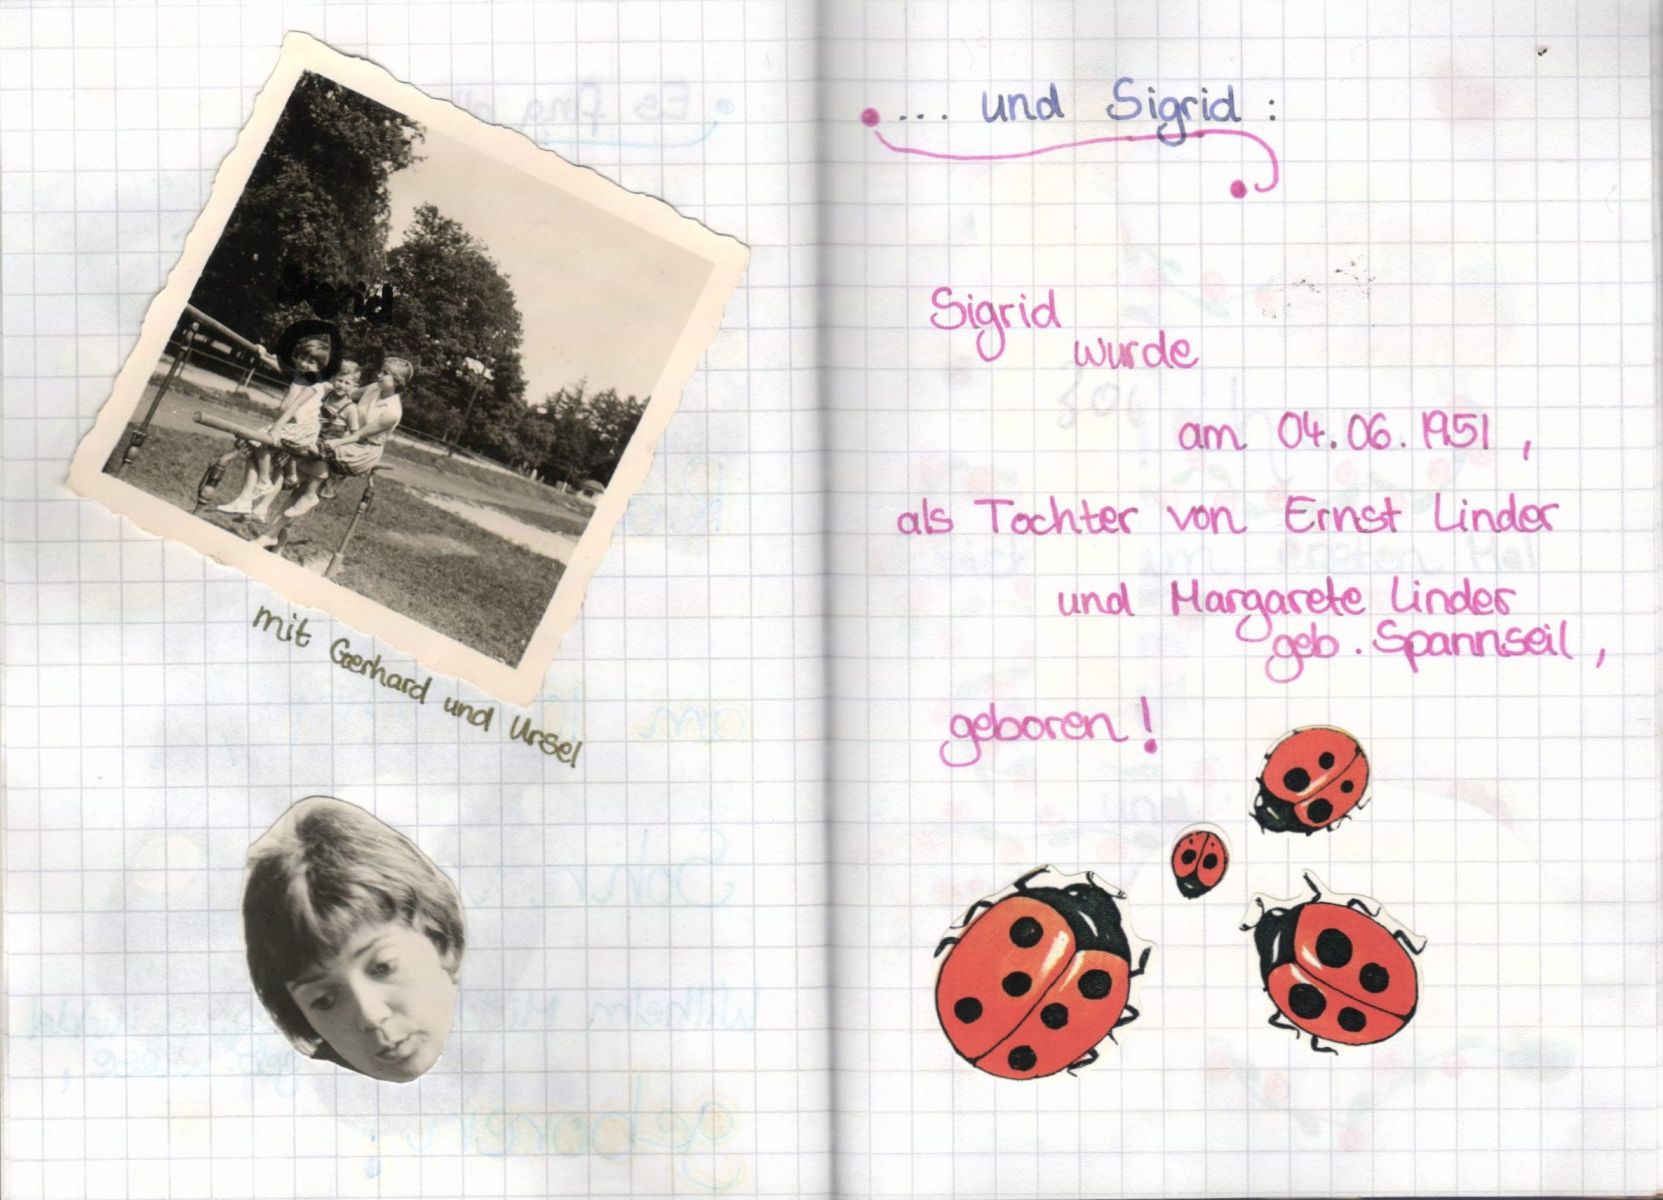 Sigrid
mit Gerhard und Ursel
... und Sigrid :
Sigrid
wurde
am 04.06.1951 ,
als Tochter von Ernst Linder
und Margarete Linder
geb. Spannseil ,
geboren !